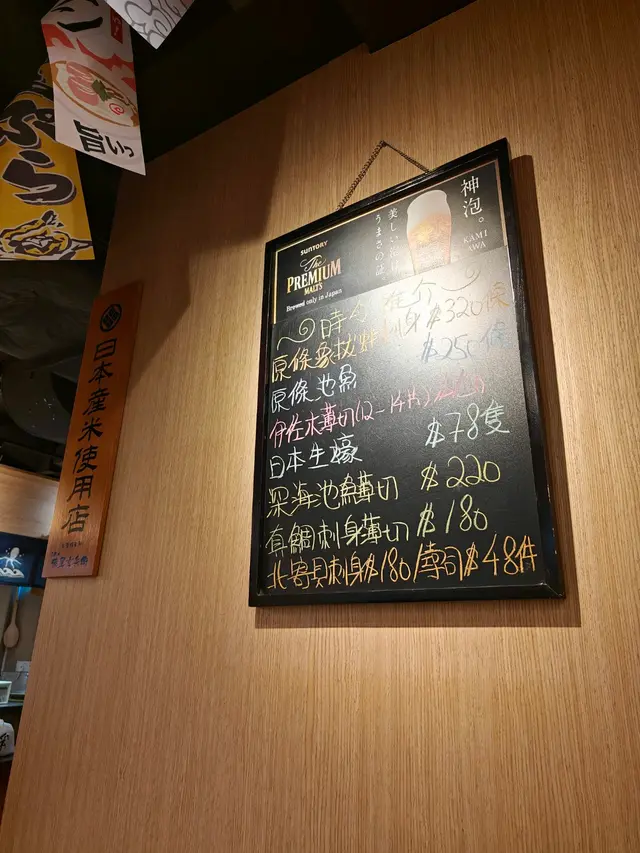 旨いっ
ぷら
日本産米使用店
SUNTORY
The
PREMIUM
MALT'S
Brewed only in Japan
美しい泡は
うまさの証
神泡。
KAMI
AWA
時令推介
原條象拔蚌刺身 $320條
原條池魚 $250條
伊佐木薄切(12-14片)
日本生蠔 $78隻
深海池魚薄切 $220
真鯛刺身薄切 $180
北寄貝刺身$180/壽司$48件